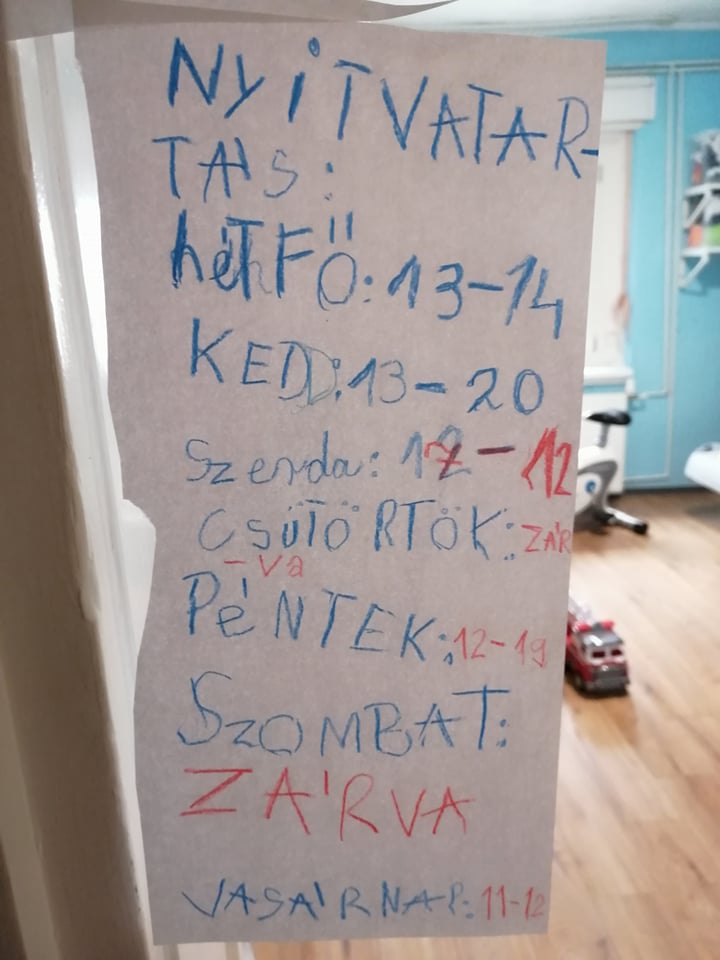 NyiTVATAR-
TÁS:
hétFŐ: 13-14
KEDD: 13-20
Szerda: 17-12
CSÜTÖRTÖK: ZÁR
-va
PéNTEK: 12-19
SZOMBAT:
ZÁRVA
VASÁRNAP: 11-12